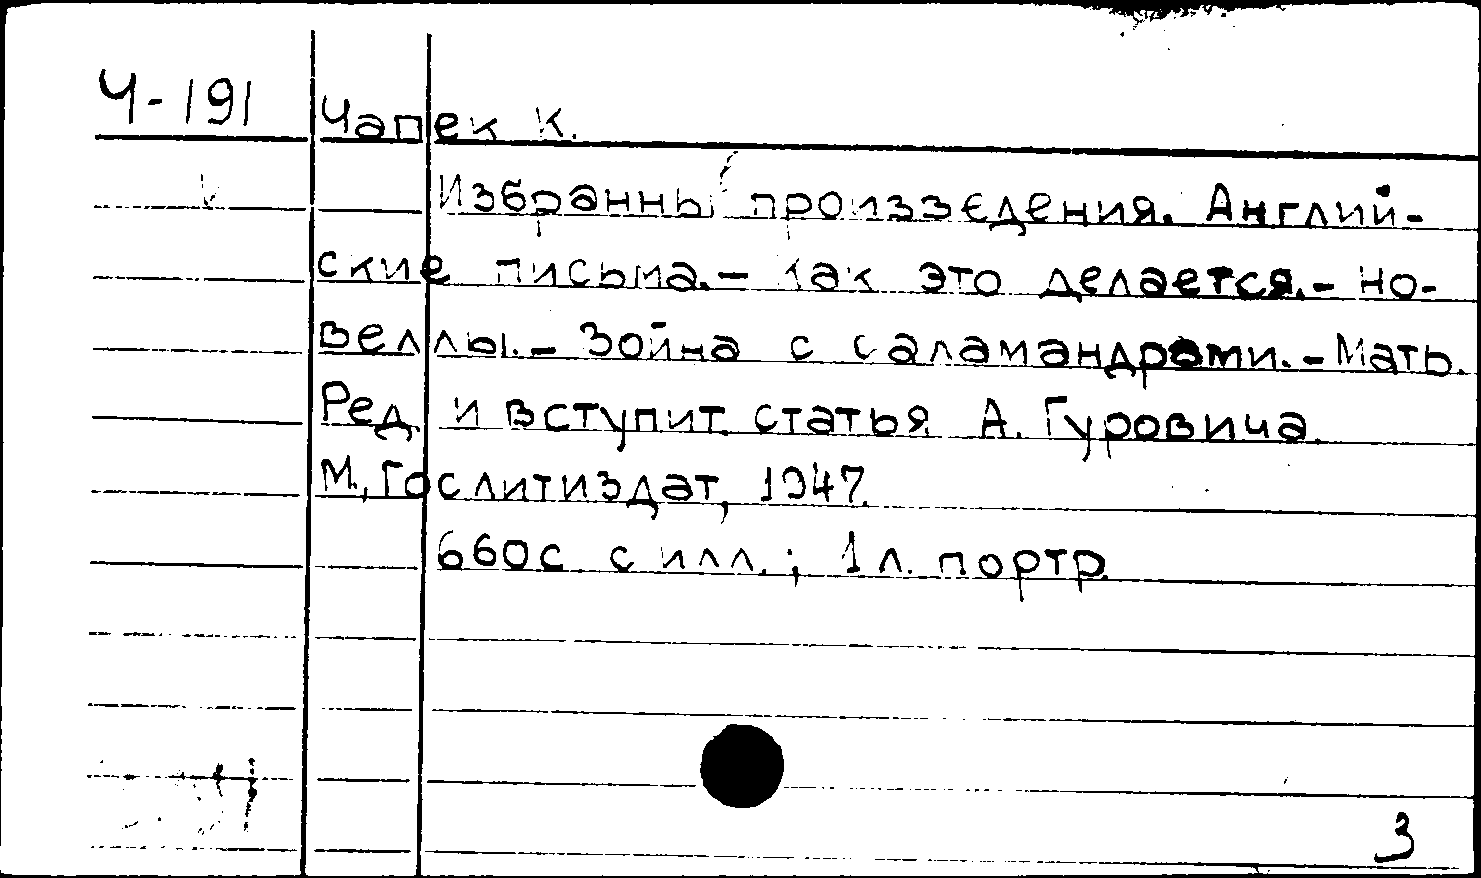 Ч-191
Чапек К.
Избранны произведения. Англий-
ские письма.- Как это делается.- Но-
веллы.- Война с саламандрами.- Мать.
Ред. и вступит. статья А. Гуровича.
М., Гослитиздат, 1947.
660с. с илл.; 1 л. портр.
3